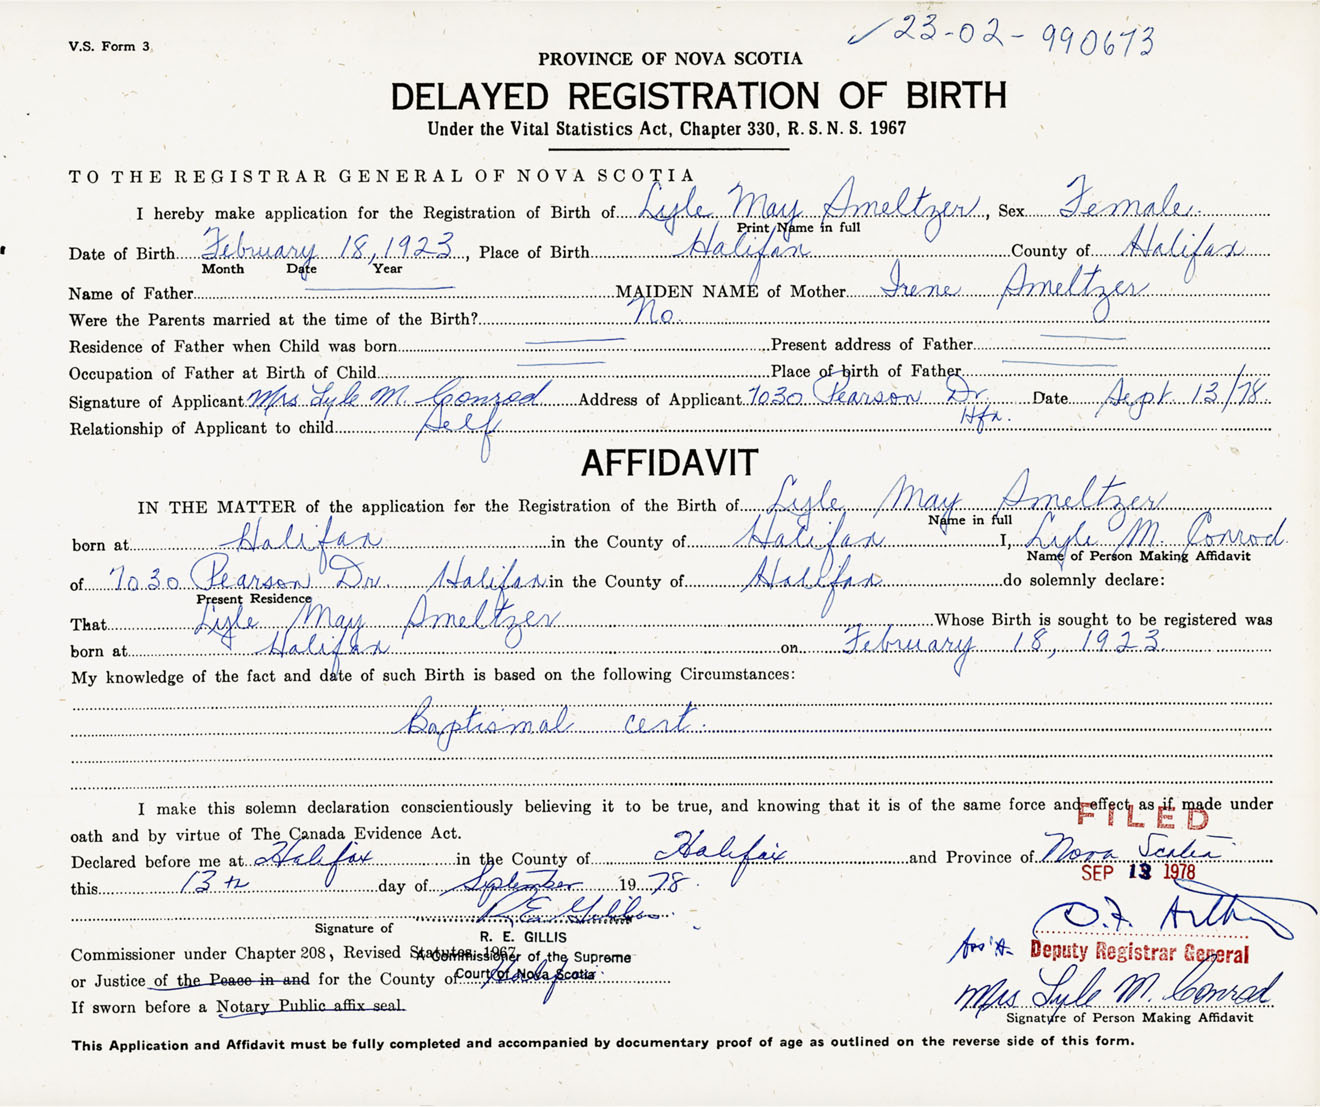 V.S. Form 3
✓ 23-02-990673
PROVINCE OF NOVA SCOTIA
DELAYED REGISTRATION OF BIRTH
Under the Vital Statistics Act, Chapter 330, R.S.N.S. 1967
TO THE REGISTRAR GENERAL OF NOVA SCOTIA
I hereby make application for the Registration of Birth of Lyle May Smeltzer, Sex Female
Print Name in full
Date of Birth February 18, 1923, Place of Birth Halifax County of Halifax
Month Date Year
Name of Father MAIDEN NAME of Mother Irene Smeltzer
Were the Parents married at the time of the Birth? No.
Residence of Father when Child was born Present address of Father
Occupation of Father at Birth of Child Place of birth of Father
Signature of Applicant Mrs Lyle M. Conrod Address of Applicant 7030 Pearson Dr. Hfx. Date Sept 13/78
Relationship of Applicant to child Self
AFFIDAVIT
IN THE MATTER of the application for the Registration of the Birth of Lyle May Smeltzer
Name in full
born at Halifax in the County of Halifax I, Lyle M. Conrod
Name of Person Making Affidavit
of 7030 Pearson Dr. Halifax in the County of Halifax do solemnly declare:
Present Residence
That Lyle May Smeltzer Whose Birth is sought to be registered was
born at Halifax on February 18, 1923.
My knowledge of the fact and date of such Birth is based on the following Circumstances:
Baptismal cert.
I make this solemn declaration conscientiously believing it to be true, and knowing that it is of the same force and effect as if made under
FILED
oath and by virtue of The Canada Evidence Act.
Declared before me at Halifax in the County of Halifax and Province of Nova Scotia
SEP 13 1978
this 13th day of September 1978.
R.E. Gillis
Signature of
R. E. GILLIS
A Commissioner of the Supreme
Court of Nova Scotia
Commissioner under Chapter 208, Revised Statutes 1967
or Justice of the Peace in and for the County of Halifax
If sworn before a Notary Public affix seal.
Deputy Registrar General
Mrs Lyle M. Conrod
Signature of Person Making Affidavit
This Application and Affidavit must be fully completed and accompanied by documentary proof of age as outlined on the reverse side of this form.